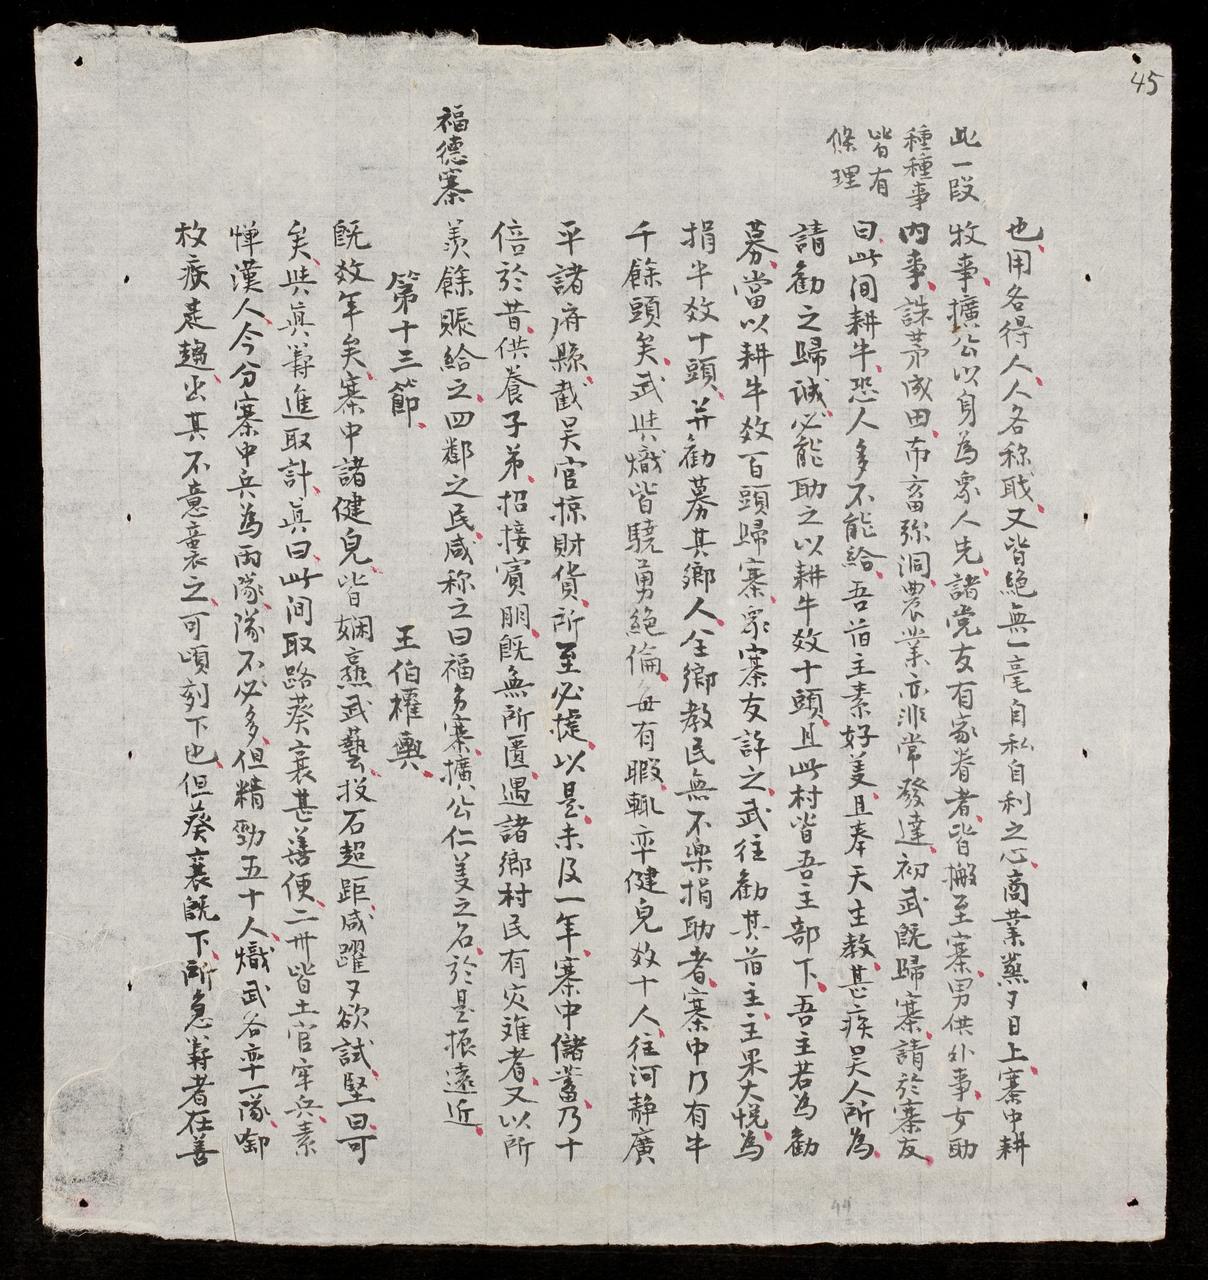 45
此一段
種種事
皆有
條理
也用各得人人各称戝又皆絕無一毫自私自利之心商業蒸々日上寨中耕
牧事擴公以身為衆人先諸党友有家眷者皆搬至寨男供外事女助
內事誅茅成田布畜弥洞農業亦非常發達初武既歸寨請於寨友
曰此间耕牛恐人多不能給吾酋主素好義且奉天主教甚疾吴人所為
請勸之歸誠必能助之以耕牛数十頭且此村皆吾主部下吾主若為勸
募當以耕牛数百頭歸寨衆寨友許之武往勸其酋主主果大悅為
捐牛数十頭并勸募其鄉人全鄉教民無不楽捐助者寨中乃有牛
千餘頭矣武與熾皆驍勇絕倫每有暇輒率健兒数十人往河静廣
平諸府縣截吴官掠財貨所至必捷以是未及一年寨中儲蓄乃十
倍於昔供養子弟招接賓朋既無所匱遇諸鄉村民有灾难者又以所
福德寨
羨餘賑給之四鄰之民咸称之曰福多寨擴公仁義之名於是振遠近
第十三節 王伯權輿
既数年矣寨中諸健皃皆嫻熟武藝投石超距咸躍々欲試堅曰可
矣與真壽進取計眞曰此间取路葵襄甚善便二卅皆土官牢兵素
惮漢人今分寨中兵為两隊隊不必多但精勁五十人熾武各率一隊啣
枚疾走趨出其不意襲之可頃刻下也但葵襄既下所急壽者在善
44